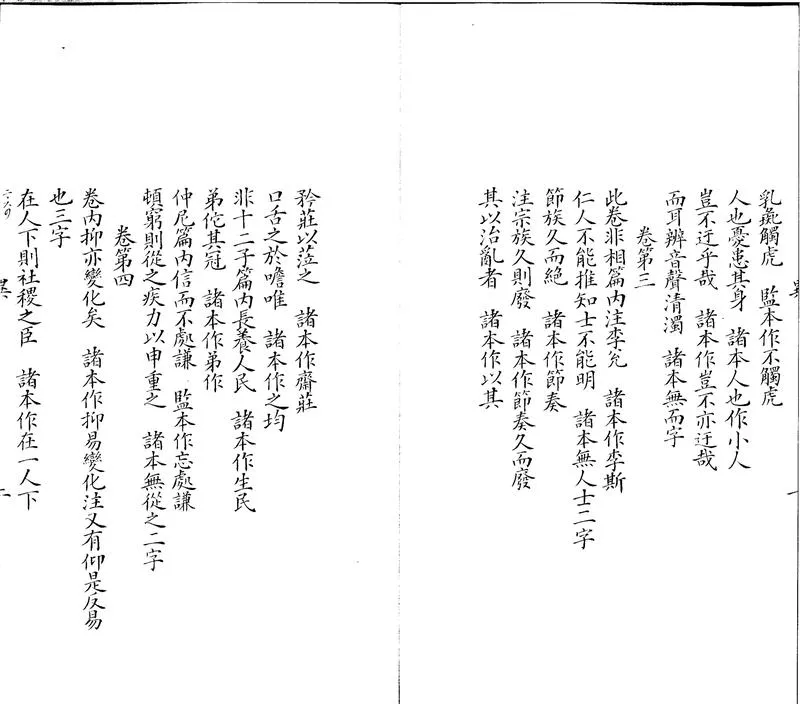 乳彘觸虎　監本作不觸虎
人也憂患其身　諸本人也作小人
豈不迂乎哉　諸本作豈不亦迂哉
而耳辨音聲清濁　諸本無而字
卷第三
此卷非相篇内注李允　諸本作李斯
仁人不能推知士不能明　諸本無人士二字
節族久而絶　諸本作節奏
注宗族久則廢　諸本作節奏久而廢
其以治亂者　諸本作以其
矜莊以蒞之　諸本作齋莊
口舌之於噡唯　諸本作之均
非十二子篇内長養人民　諸本作生民
弟佗其冠　諸本作弟作
仲尼篇内信而不處謙　監本作忘處謙
頓窮則從之疾力以申重之　諸本無從之二字
卷第四
卷内抑亦變化矣　諸本作抑易變化注又有仰是反易
也三字
在人下則社稷之臣　諸本作在一人下